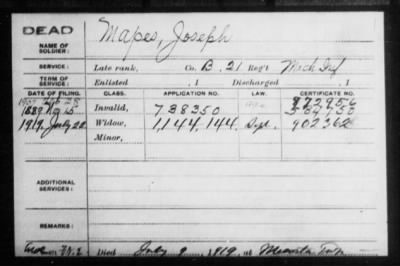 DEAD
NAME OF SOLDIER: Mapes, Joseph
SERVICE: Late rank, Co. B. 21 Reg't Mich Inf
TERM OF SERVICE: Enlisted , 1 Discharged , 1
DATE OF FILING. CLASS. APPLICATION NO. LAW. CERTIFICATE NO.
1889 Invalid, 738350
1919, July 28 Widow, 1,144,144, Sept. 902362
Minor,
ADDITIONAL SERVICES:
REMARKS:
Died July 9, 1919, at